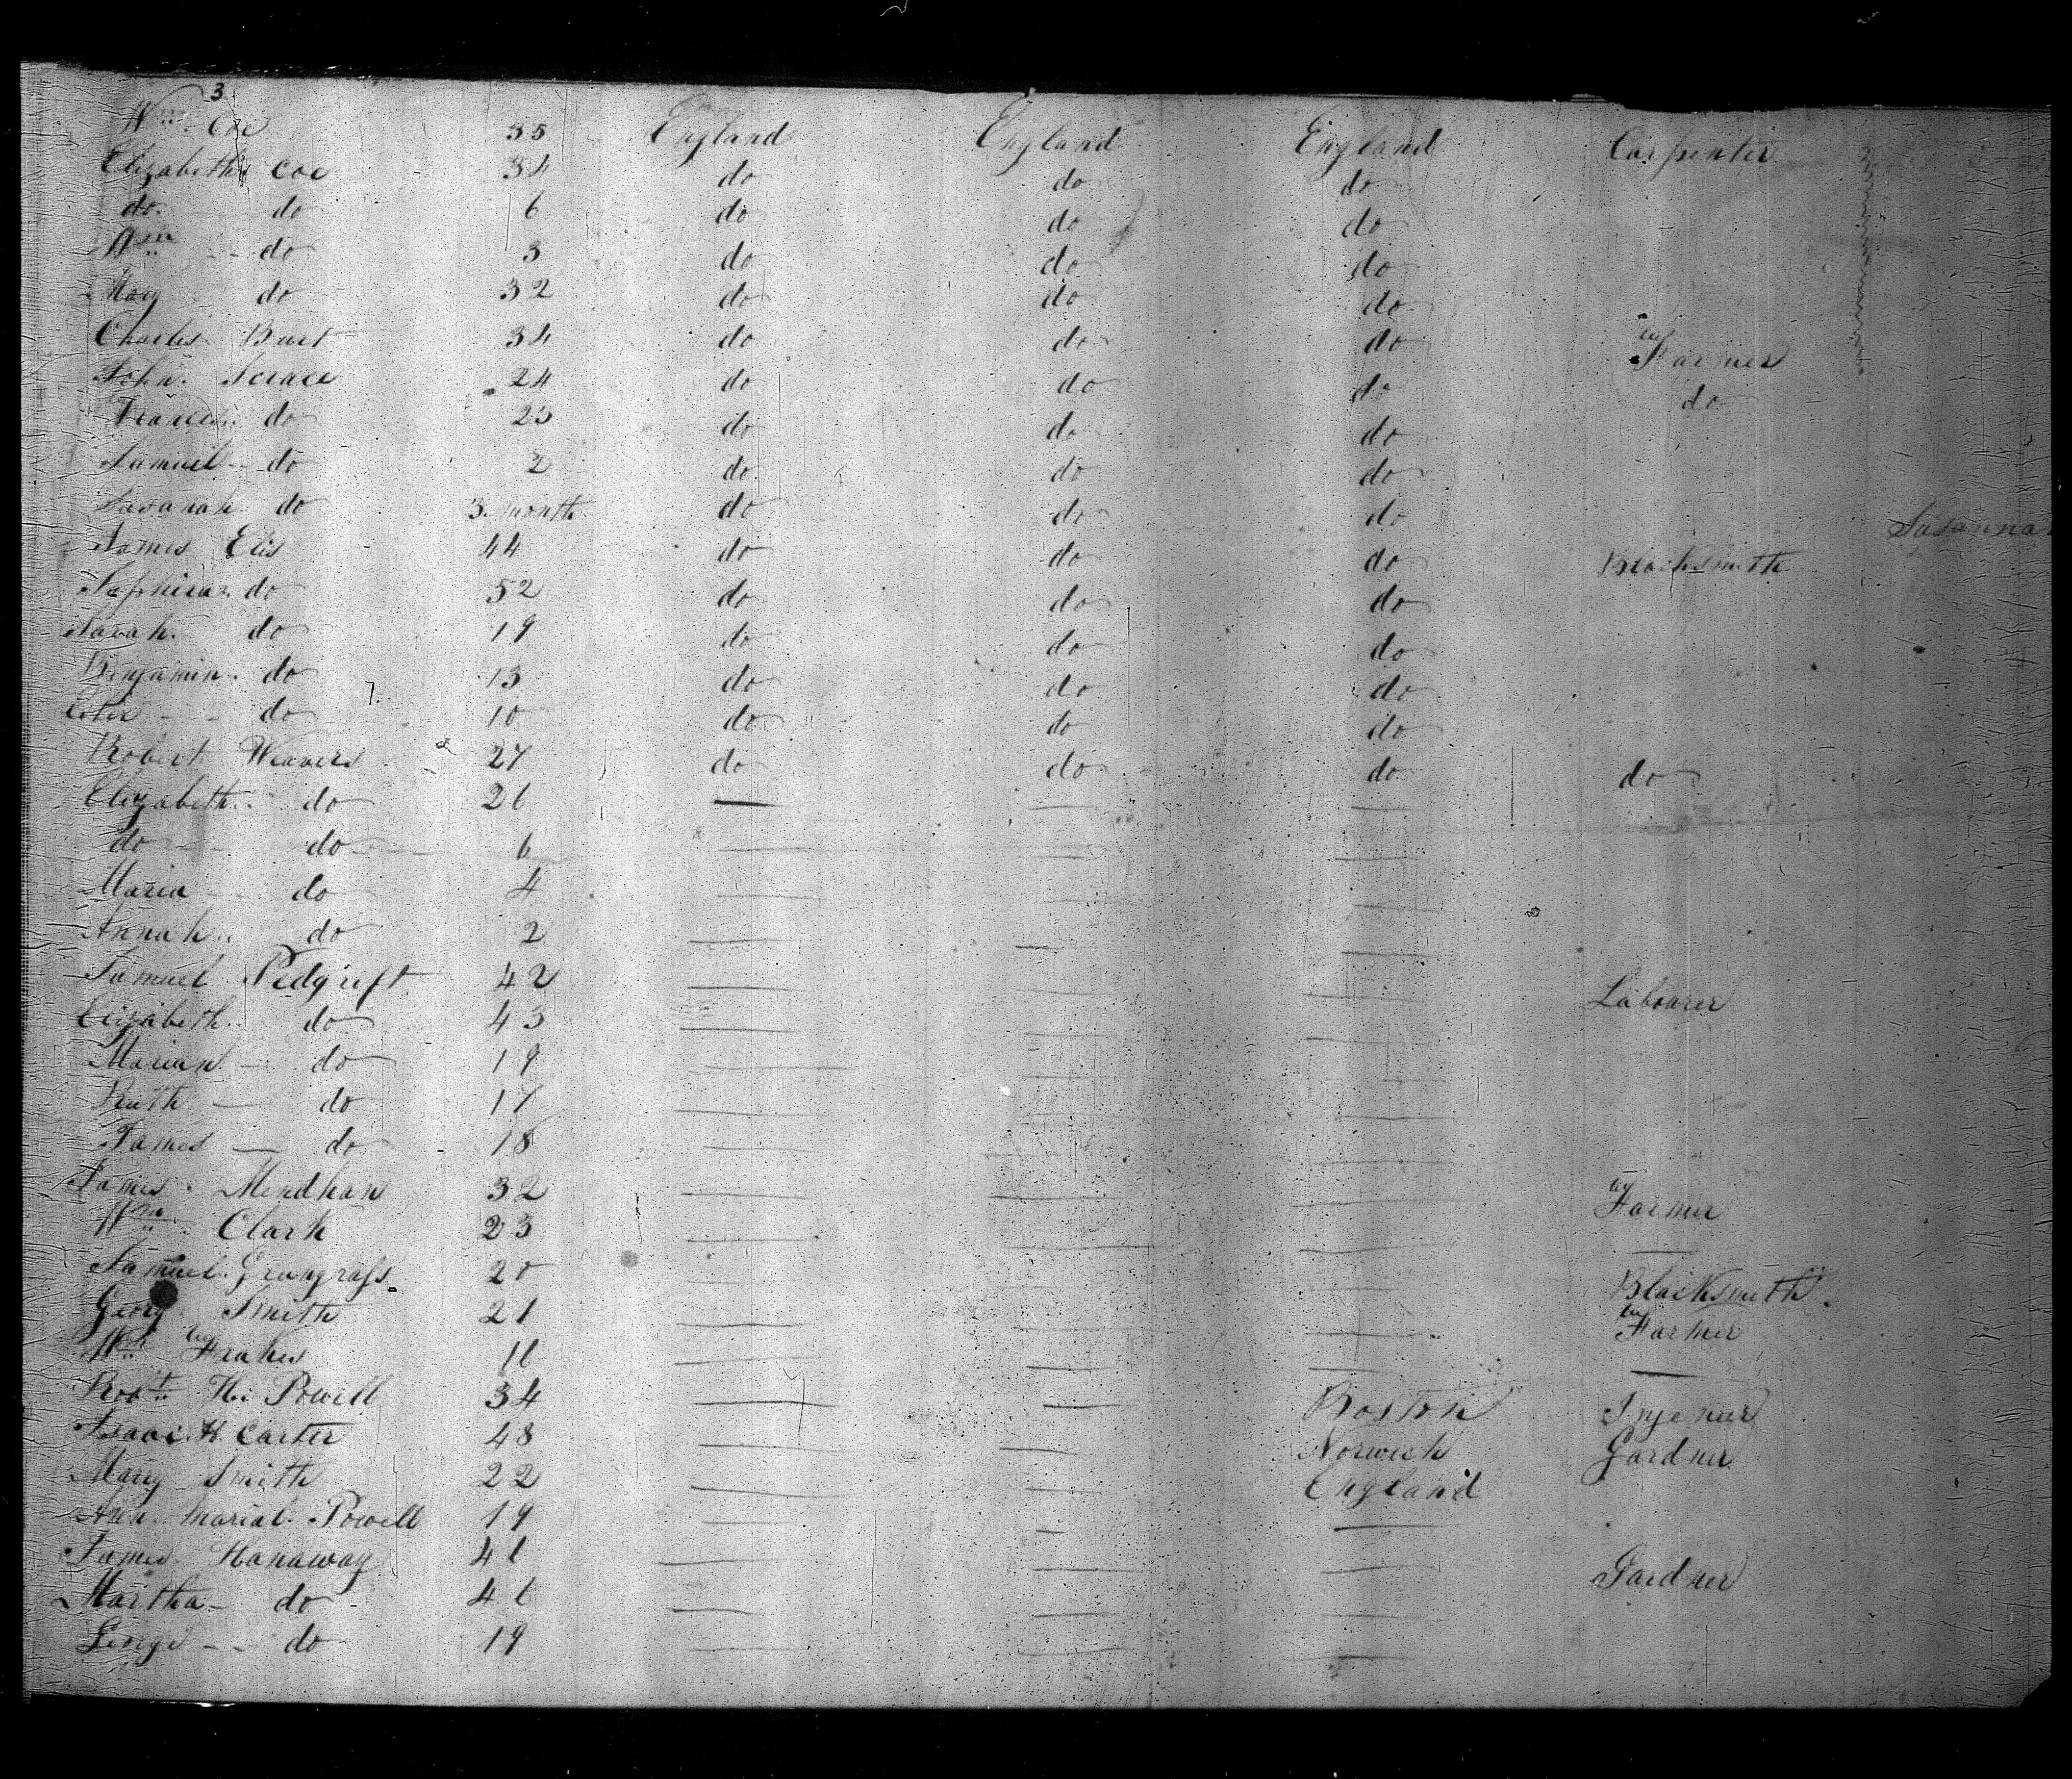 3
Wm. Coe 35 England England England Carpenter
Elizabeth Coe 34 do do do
do. do 6 do do do
Wm do 3 do do do
Mary do 32 do do do
Charles Burt 34 do do do Farmer
John. Scrace 24 do do do do
Frances. do 23 do do do
Samuel do 2 do do do
Susanah do 3. month. do do do Susanna
James Elis 44 do do do Blacksmith
do 52 do do do
Sarah. do 19 do do do
Benjamin. do 13 do do do
do 10 do do do
Robert Weavers 27 do do do do
Elizabeth. do 26
do do 6
Maria do 4
Annah. do 2
Samuel Pedgrift 42 Labourer
Elizabeth. do 43
Marian — do 19
Ruth — do 17
James — do 18
James. Mendhan 32 Farmer
Wm Clark 23 —
Samuel. Grangrass 20 Blacksmith.
Georg Smith 21 Farmer
Wm 16 —
Robt. H. Powell 34 Boston
Isaac. H. Carter 48 Norwich Gardner
Mary Smith 22 England
Ann. Mariah. Powell 19
James Hanaway 46 Gardner
Martha — do 46
do 19